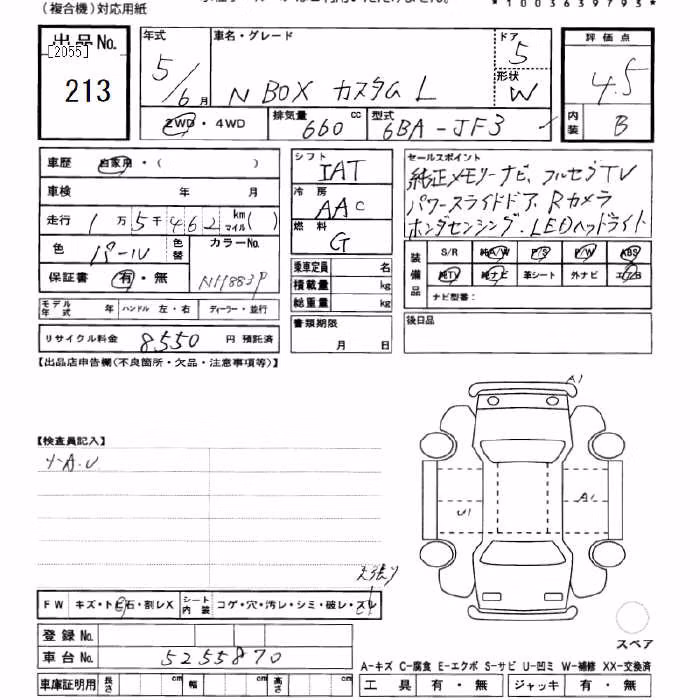 (複合機)対応用紙
*1003639793*
出品No.
[2055]
213
年式
5/6月
車名・グレード
N BOX カスタム L
ドア
5
形状
W
2WD・4WD
排気量
660 cc
型式
6BA-JF3
評価点
4.5
内装
B
車歴
自家用・( )
車検 年 月
走行 1万5千462 km マイル( )
色
パール
色替
カラーNo.
NH883P
保証書
有・無
モデル年式 年
ハンドル 左・右
ディーラー・並行
リサイクル料金 8550 円 預託済
シフト
IAT
冷房
AAC
燃料
G
乗車定員 名
積載量 kg
総重量 kg
書類期限
月 日
セールスポイント
純正メモリーナビ、フルセグTV
パワースライドドア、Rカメラ
ホンダセンシング、LEDヘッドライト
装備品
S/R 純A/W P/S P/W ABS
純TV 純ナビ 革シート 外ナビ エアB
ナビ型番:
後日品
【出品店申告欄(不良箇所・欠品・注意事項等)】
【検査員記入】
A1
A1
U1
FW キズ・トビ石・割レX
シート内装 コゲ・穴・汚レ・シミ・破レ・スレ
登録No.
車台No. 5255870
車庫証明用 長さ cm 幅 cm 高さ cm
スペア
A-キズ C-腐食 E-エクボ S-サビ U-凹ミ W-補修 XX-交換済
工具 有・無
ジャッキ 有・無